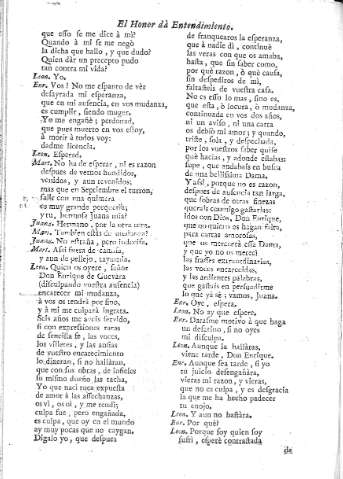 El Honor dà Entendimiento.
que esso se me dice à mi?
Quando à mi se me negò
la dicha que hallo, y que dudo?
Quien dàr un precepto pudo
tan contra mi vida?
Leon. Yo.
Enr. Vos! No me espanto de vèr
desayrada mi esperanza,
que en mi ausencia, en vos mudanza,
es cumplir, siendo muger.
Yo me engañè; perdonad,
que pues muerto en vos estoy,
à morir à todos voy:
dadme licencia.
Leon. Esperad.
Mart. No ha de esperar, ni es razon
despues de vernos hundidos,
vendidos, y aun
mas que en Septiembre el turron,
salir con una
es muy grande porqueria;
y tu, hermosa Juana mia?
Juana. Hermano, por la otra
Mart. Tambien estàs de mudanza?
Juana. No estraña, pero
Mart. Assi fueras de
y aun de pellejo,
Leon. Quien os oyere, señor
Don Enrique de Guevara
(disculpando vuestra ausencia)
encarecer mi mudanza,
à vos os tendrà por fino,
y à mi me culparà ingrata.
Seis años me aveis servido,
si con expressiones raras
de sencilla fe, las voces,
los villetes, y las ansias
de vuestro encarecimiento
lo dixeran, si no hallàran,
que con sus obras, de infieles
su mismo dueño las tacha.
Yo que naci roca expuesta
de amor à las assechanzas,
os vi, os oì, y me rendì;
culpa fue, pero engañada,
es culpa, que oy en el mundo
ay muy pocas que no caygan.
Digalo yo, que despues
de franquearos la esperanza,
que à nadie dì, continuè
las veras con que os amaba,
hasta, que sin saber como,
por què razon, ò què causa,
sin despediros de mi,
faltasteis de vuestra casa.
No es esto lo mas, sino es,
que esta, ò locura, ò mudanza,
continuada en vos dos años,
ni un aviso, ni una carta
os debiò mi amor; y quando,
triste, sola, y despreciada,
por los vuestros saber quise
què haciais, y adonde estabais
supe, que andabais en busca
de una bellissima Dama.
Y assi, porque no es razon,
despues de ausencia tan larga,
que sobras de otras finezas
querais conmigo gastarlas:
idos con Dios, Don Enrique,
que no quiero os hagan falta,
para tantas amorosas,
que os merecerà essa Dama,
y que yo no os merecì
las frasses extraordinarias,
las voces encarecidas,
y las ardientes palabras,
que gastais en persuadirme
lo que yà sè: vamos, Juana.
Enr. Oye, espera.
Leon. No ay que espere.
Enr. Daràsme motivo à que haga
un desatino, si no oyes
mi disculpa.
Leon. Aunque la hallàras,
viene tarde, Don Enrique.
Enr. Aunque sea tarde, si yo
tu juicio desengañàra,
vieras mi razon, y vieras,
que no es culpa, y es desgracia
la que me ha hecho padecer
tu enojo.
Leon. Y aun no bastàra.
Enr. Por què?
Leon. Porque soy quien soy
sufrì, esperè contrastada
de